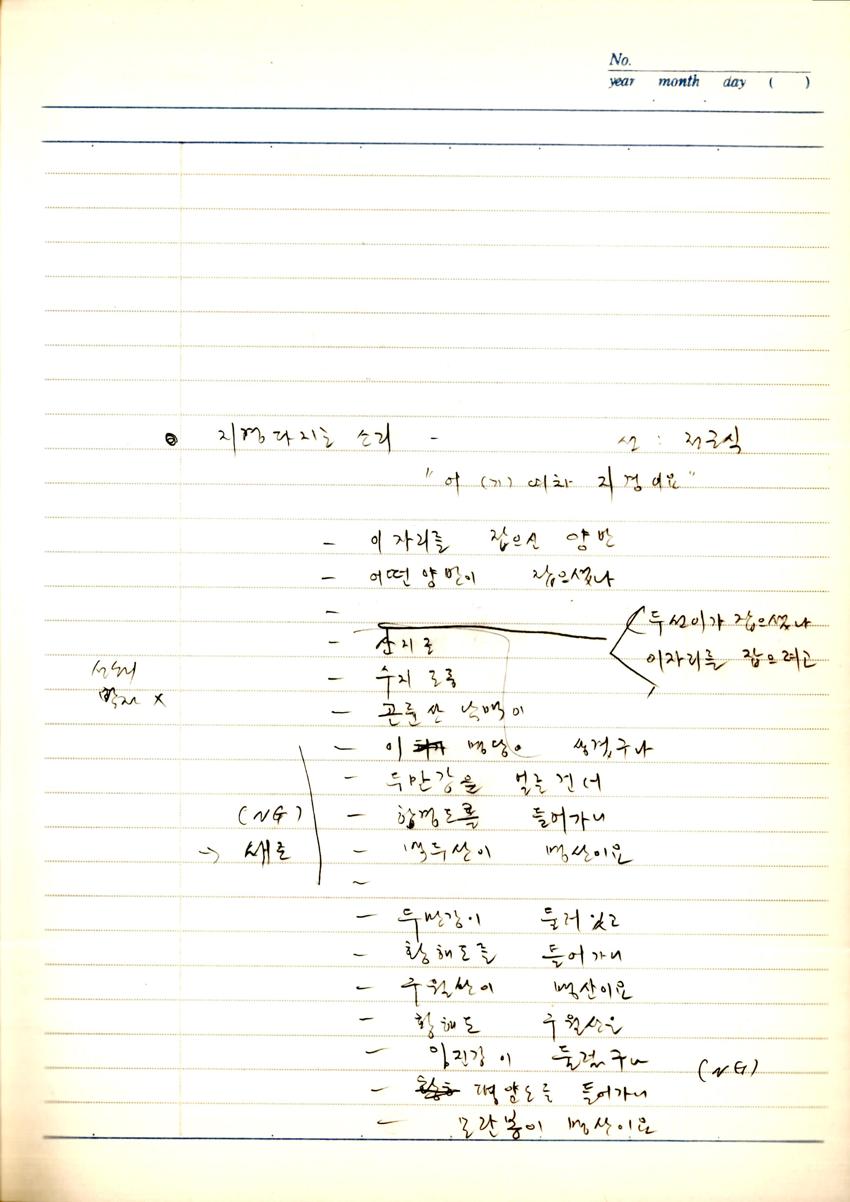 No.
year month day ( )
지경다지는 소리 -
선 : 정근식
" 어 (기) 여차 지경이요 "
- 이 자리를 잡으신 양반
- 어떤 양반이 잡으셨나
-
두선이가 잡으셨나
이자리를 잡으려고
- 산지로
- 수지
- 곤륜산 낙맥이
- 이 명당이 생겼구나
- 두만강을 얼른 건너
(NG)
- 함경도를 들어가니
→ 새로
- 백두산이 명산이요
~
- 두만강이 둘러 있고
- 황해도를 들어가니
- 구월산이 명산이요
- 황해도 구월산은
- 임진강이 둘렀구나
(NG)
- 평양도를 들어가니
- 모란봉이 명산이요